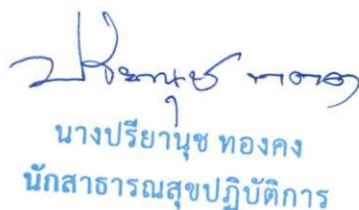 ปรียานุช ทองคง
นางปรียานุช ทองคง
นักสาธารณสุขปฏิบัติการ